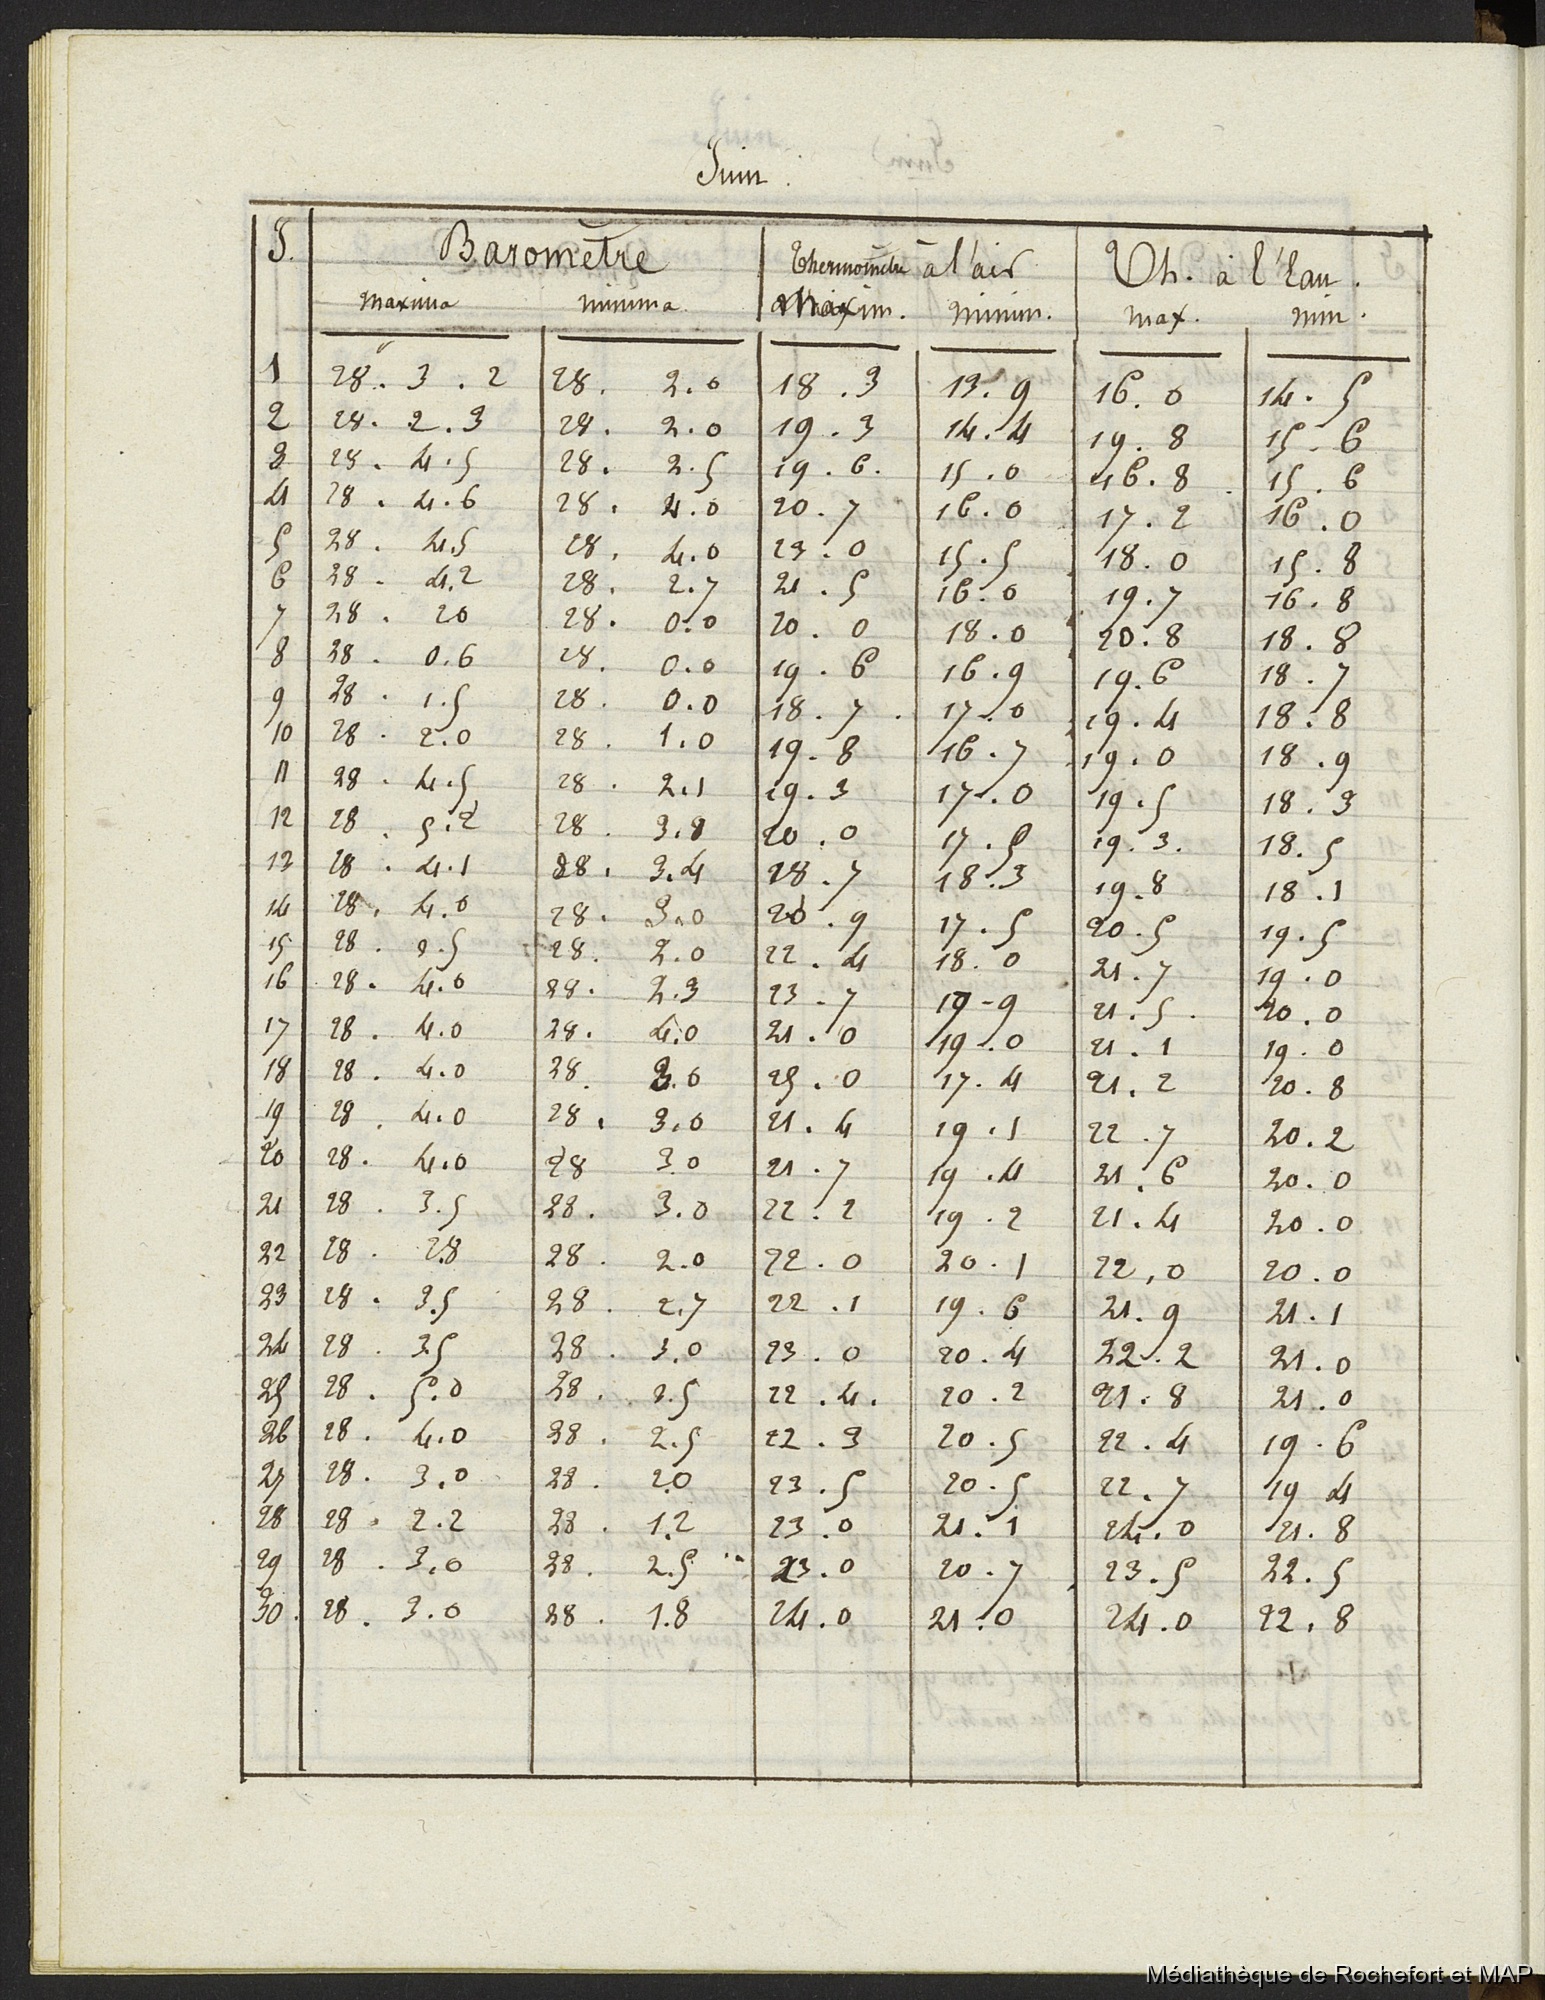 Juin.
J. Baromètre Thermomètre à l'air Th. à l'Eau.
maxima minima. Maxim. minim. max. min.
1 28. 3. 2 28. 2.0 18.3 13.9 16.0 14.5
2 28. 2.3 28. 2.0 19.3 14.4 19.8 15.6
3 28. 4.5 28. 2.5 19.6. 15.0 16.8 15.6
4 28. 4.6 28. 4.0 20.7 16.0 17.2 16.0
5 28. 4.5 28. 4.0 23.0 15.5 18.0 15.8
6 28. 4.2 28. 2.7 21.5 16.0 19.7 16.8
7 28. 20 28. 0.0 20.0 18.0 20.8 18.8
8 28. 0.6 28. 0.0 19.6 16.9 19.6 18.7
9 28. 1.5 28. 0.0 18.7. 17.0 19.4 18.8
10 28. 2.0 28. 1.0 19.8 16.7 19.0 18.9
11 28. 4.5 28. 2.1 19.3 17.0 19.5 18.3
12 28. 5.2 28. 3.8 20.0 17.5 19.3. 18.5
13 28. 4.1 28. 3.4 28.7 18.3 19.8 18.1
14 28. 4.0 28. 3.0 20.9 17.5 20.5 19.5
15 28. 2.5 28. 2.0 22.4 18.0 21.7 19.0
16 28. 4.0 28. 2.3 23.7 19.9 21.5. 20.0
17 28. 4.0 28. 4.0 21.0 19.0 21.1 19.0
18 28. 4.0 28. 3.0 25.0 17.4 21.2 20.8
19 28. 4.0 28. 3.0 21.4 19.1 22.7 20.2
20 28. 4.0 28 3.0 21.7 19.4 21.6 20.0
21 28. 3.5 28. 3.0 22.2 19.2 21.4 20.0
22 28. 2.8 28. 2.0 22.0 20.1 22,0 20.0
23 28. 3.5 28. 2.7 22.1 19.6 21.9 21.1
24 28. 3.5 28. 3.0 23.0 20.4 22.2 21.0
25 28. 5.0 28. 2.5 22.4. 20.2 21.8 21.0
26 28. 4.0 28. 2.5 22.3 20.5 22.4 19.6
27 28. 3.0 28. 2.0 23.5 20.5 22.7 19 4
28 28. 2.2 28. 1.2 23.0 21.1 24.0 21.8
29 28. 3.0 28. 2.5 23.0 20.7 23.5 22.5
30. 28. 3.0 28. 1.8 24.0 21.0 24.0 22.8
Médiathèque de Rochefort et MAP